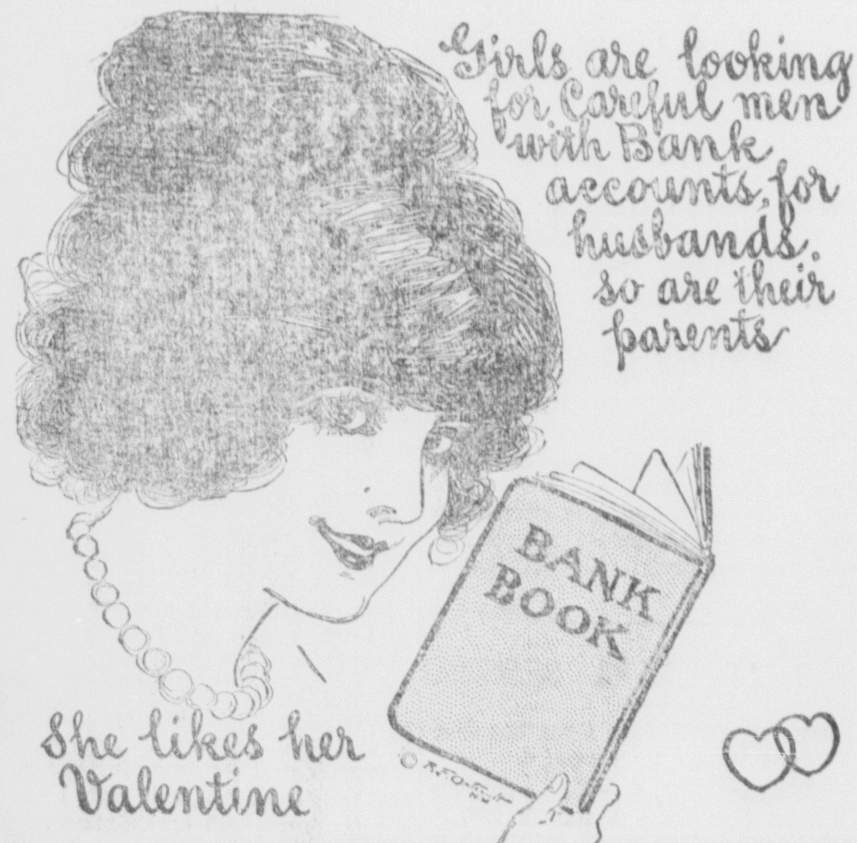 Girls are looking
for Careful men
with Bank
accounts, for
husbands.
so are their
parents
BANK
BOOK
She likes her
Valentine
©